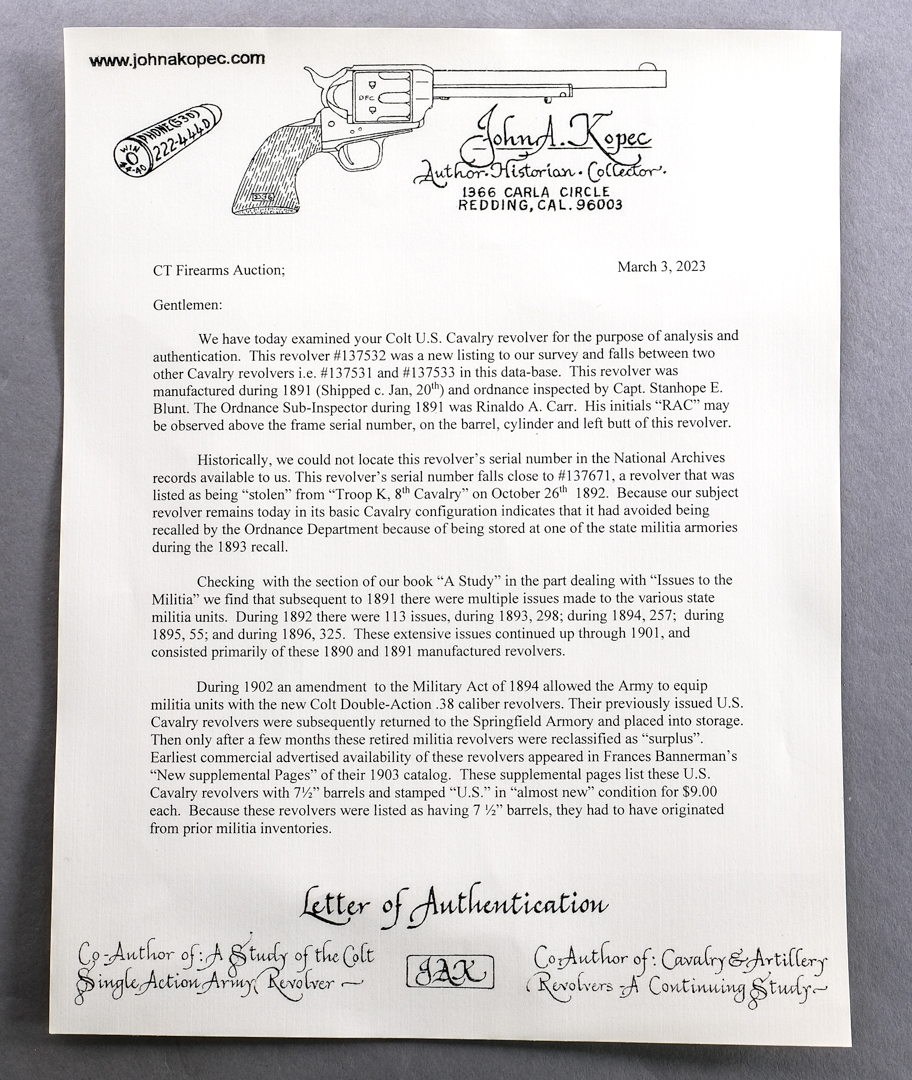 www.johnakopec.com
PHONE (530)
222-4440
WIN
44-40
DFC
John A. Kopec
Author·Historian·Collector·
1366 CARLA CIRCLE
REDDING, CAL. 96003
CT Firearms Auction; March 3, 2023
Gentlemen:
We have today examined your Colt U.S. Cavalry revolver for the purpose of analysis and
authentication. This revolver #137532 was a new listing to our survey and falls between two
other Cavalry revolvers i.e. #137531 and #137533 in this data-base. This revolver was
manufactured during 1891 (Shipped c. Jan, 20th) and ordnance inspected by Capt. Stanhope E.
Blunt. The Ordnance Sub-Inspector during 1891 was Rinaldo A. Carr. His initials “RAC” may
be observed above the frame serial number, on the barrel, cylinder and left butt of this revolver.
Historically, we could not locate this revolver’s serial number in the National Archives
records available to us. This revolver’s serial number falls close to #137671, a revolver that was
listed as being “stolen” from “Troop K, 8th Cavalry” on October 26th 1892. Because our subject
revolver remains today in its basic Cavalry configuration indicates that it had avoided being
recalled by the Ordnance Department because of being stored at one of the state militia armories
during the 1893 recall.
Checking with the section of our book “A Study” in the part dealing with “Issues to the
Militia” we find that subsequent to 1891 there were multiple issues made to the various state
militia units. During 1892 there were 113 issues, during 1893, 298; during 1894, 257; during
1895, 55; and during 1896, 325. These extensive issues continued up through 1901, and
consisted primarily of these 1890 and 1891 manufactured revolvers.
During 1902 an amendment to the Military Act of 1894 allowed the Army to equip
militia units with the new Colt Double-Action .38 caliber revolvers. Their previously issued U.S.
Cavalry revolvers were subsequently returned to the Springfield Armory and placed into storage.
Then only after a few months these retired militia revolvers were reclassified as “surplus”.
Earliest commercial advertised availability of these revolvers appeared in Frances Bannerman’s
“New supplemental Pages” of their 1903 catalog. These supplemental pages list these U.S.
Cavalry revolvers with 7½” barrels and stamped “U.S.” in “almost new” condition for $9.00
each. Because these revolvers were listed as having 7 ½” barrels, they had to have originated
from prior militia inventories.
Letter of Authentication
Co-Author of: A Study of the Colt
Single Action Army Revolver —
JAK
Co-Author of: Cavalry & Artillery
Revolvers - A Continuing Study-